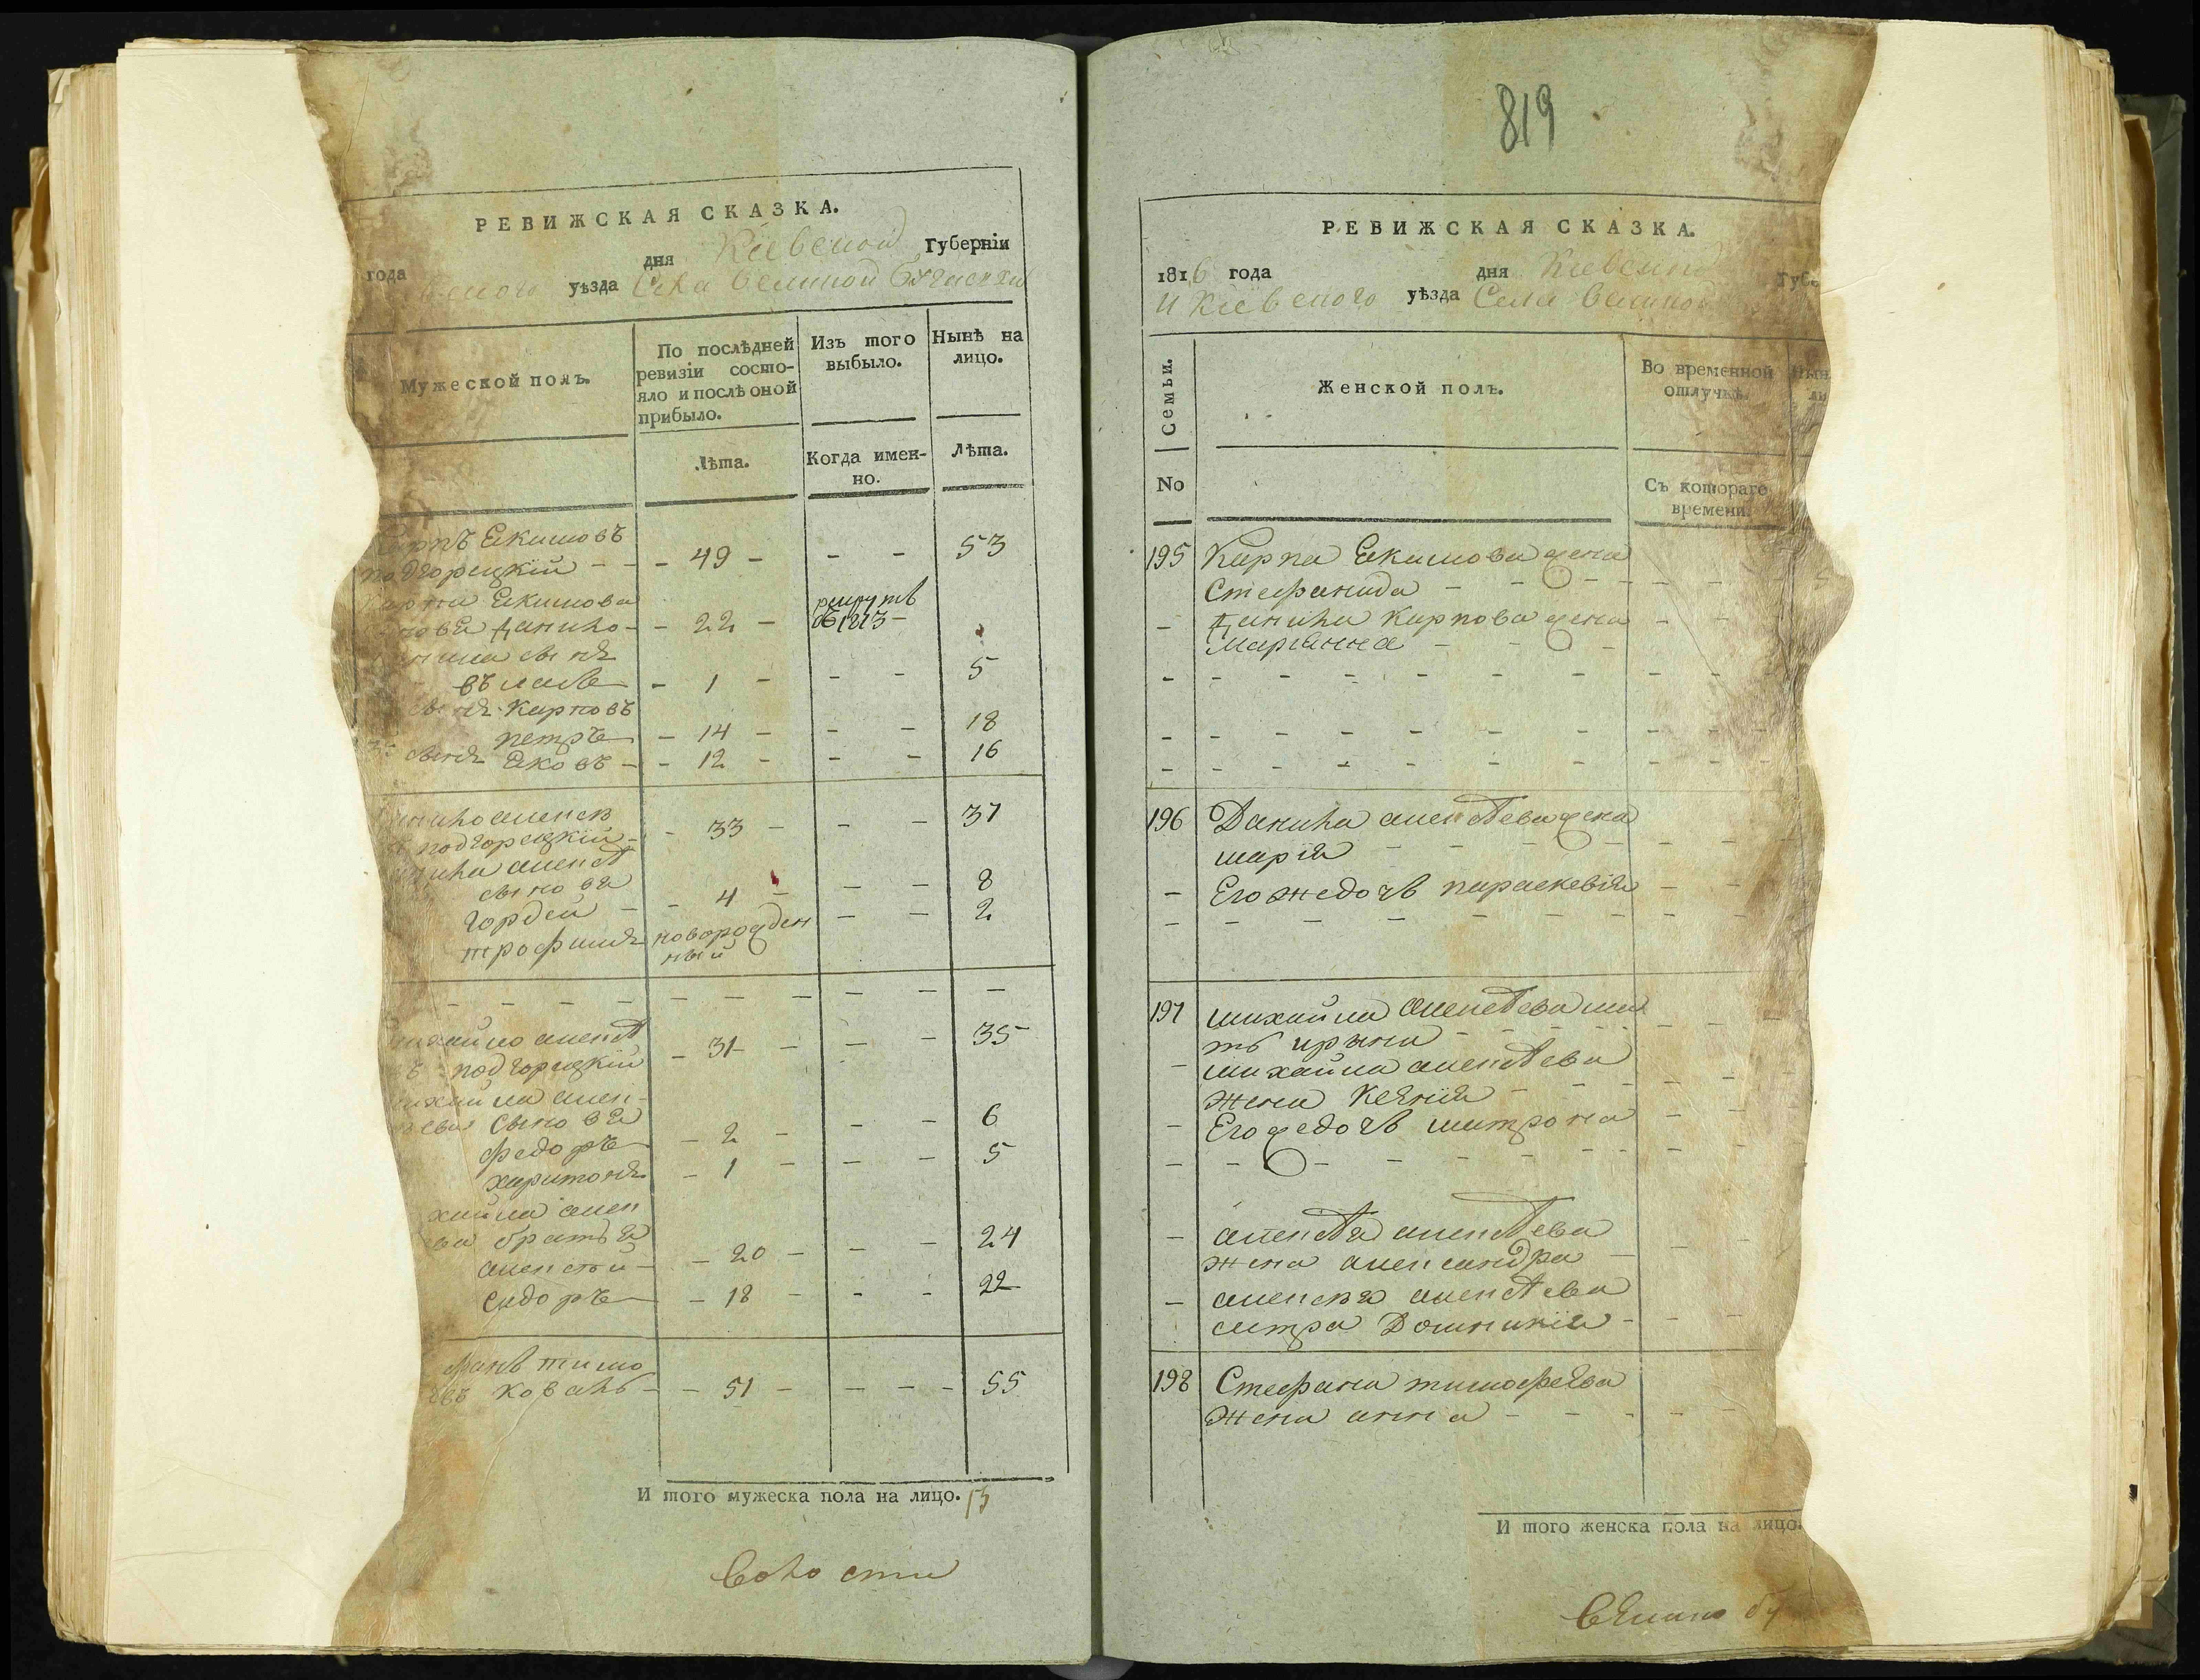 РЕВИЖСКАЯ СКАЗКА.
года дня Кіевской губерніи
уѣзда Села великой
Мужеской полъ.
По послѣдней ревизіи состо-
яло и послѣ оной прибыло.
Изъ того выбыло.
Нынѣ на лицо.
Лѣта.
Когда имен-
но.
Лѣта.
Карпъ Екимовъ
подгорецкій - - 49 - - - 53
Карпа Екимова
Данило - - 22 - рекрутъ
въ 1813 -
сынъ
- 1 - - - 5
сынъ Карповъ
петръ - 14 - - - 18
сынъ Яковъ - - 12 - - - 16
подгорецкій - - 33 - - - 37
сыновя
гордей - - 4 - - - 8
трофимъ новорожден
ный - - 2
- - - - - - - - - -
михайло алексѣ
въ подгорецкій - 31 - - - 35
михайла алек-
сыновя
федоръ - 2 - - - 6
харитонъ - 1 - - - 5
хайла алек
ева братья
алексѣй - - 20 - - - 24
сидоръ - 18 - - - 22
тимо
евъ коваль - - 51 - - - - 55
И того мужеска пола на лицо. 13
волости
819
РЕВИЖСКАЯ СКАЗКА.
1816 года дня Кіевской Губе
И Кіевского уѣзда Села великой
Семьи.
No
Женской полъ.
Во временной
отлучкѣ.
Нын
ли
Съ котораго
времени.
195 Карпа Екимова жена
Стефанида - - -
- Данила Карпова жена
Маріанна - - -
- - - - - - - -
- - - - - - - -
- - - - - - - -
196 Данила алексѣева жена
марія - - - -
- Его же дочь параскевія
- - - - - - -
197 михайла алексѣева ма
ть ирина - - - -
- михайла алексѣева
жена Ксенія - -
- Его же дочь матрона
- - - - - - - -
- алексѣя алексѣева
жена александра -
- алексѣя алексѣева
сестра Домникія -
198 Стефана тимофеева
жена анна - - -
И того женска пола на лицо.